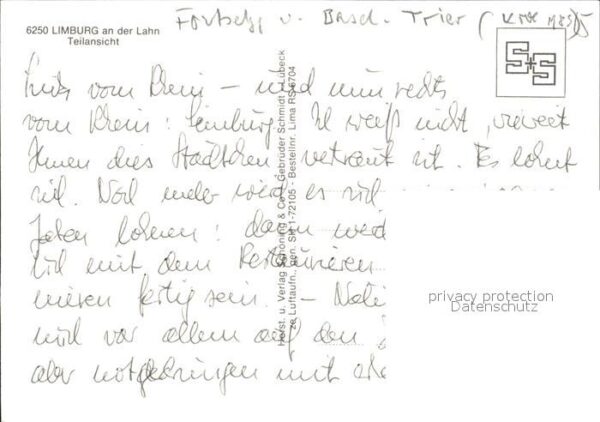 6250 LIMBURG an der Lahn
Teilansicht
Fortsetzg v. Basel-Trier
S+S
links vom Rhein – und nun rechts
vom Rhein: Limburg. Ich weiß nicht, wieweit
Ihnen dies Städtchen vertraut ist. Es lohnt
sich. Noch mehr wird es sich
Jahren lohnen: dann
sich mit dem Restaurieren
fertig sein. –
wird vor allem auf den
aber notgedrungen mit
Herst. u. Verlag Schöning & Co + Gebrüder Schmidt, Lübeck
Luftaufn., gen. SH 1-72105 - Bestellnr. Lima RS 6704
privacy protection
Datenschutz